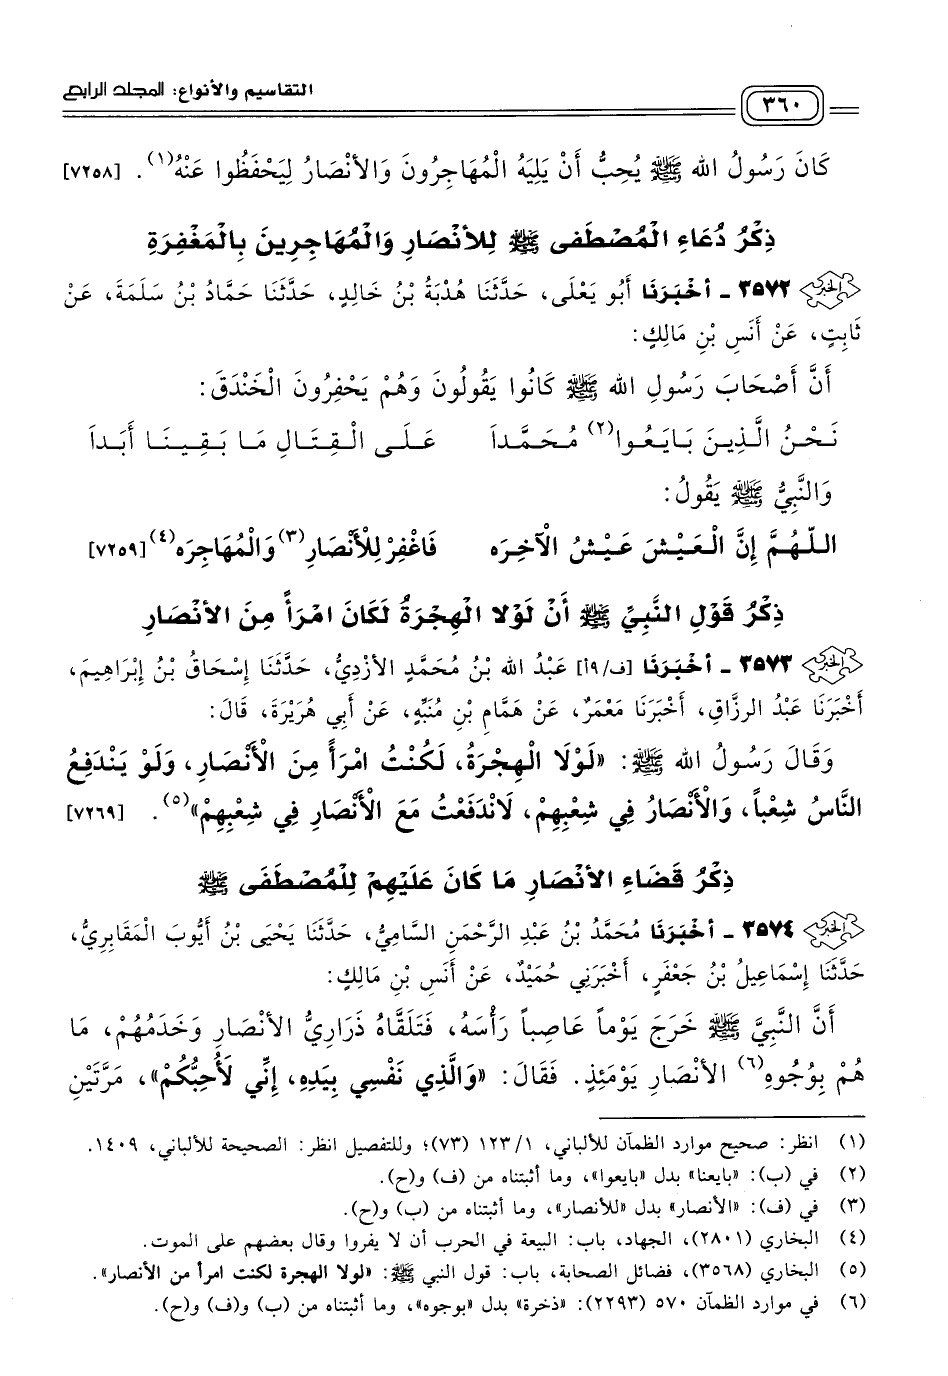 التقاسيم والأنواع: المجلد الرابع
٣٦٠
كَانَ رَسُولُ الله ﷺ يُحِبُّ أَنْ يَلِيَهُ الْمُهَاجِرُونَ وَالأَنْصَارُ لِيَحْفَظُوا عَنْهُ(١). [٧٢٥٨]
ذِكْرُ دُعَاءِ الْمُصْطَفى ﷺ لِلأَنْصَارِ وَالْمُهَاجِرِينَ بِالْمَغْفِرَةِ
٣٥٧٢ ـ أخْبَرَنَا أَبُو يَعْلَى، حَدَّثَنَا هُدْبَةُ بْنُ خَالِدٍ، حَدَّثَنَا حَمَّادُ بْنُ سَلَمَةَ، عَنْ
ثَابِتٍ، عَنْ أَنَسِ بْنِ مَالِكٍ:
أَنَّ أَصْحَابَ رَسُولِ الله ﷺ كَانُوا يَقُولُونَ وَهُمْ يَحْفِرُونَ الْخَنْدَقَ:
نَحْنُ الَّذِينَ بَايَعُوا(٢) مُحَمَّداً عَلَى الْقِتَالِ مَا بَقِينَا أَبَداً
وَالنَّبِيُّ ﷺ يَقُولُ:
اللّهُمَّ إِنَّ الْعَيْشَ عَيْشُ الآخِرَه فَاغْفِرْ لِلْأَنْصَارِ(٣) وَالْمُهَاجِرَه(٤) [٧٢٥٩]
ذِكْرُ قَوْلِ النَّبِيِّ ﷺ أَنْ لَوْلا الْهِجْرَةُ لَكَانَ امْرَأً مِنَ الأَنْصَارِ
٣٥٧٣ ـ أخْبَرَنَا [ف/٩أ] عَبْدُ الله بْنُ مُحَمَّدٍ الأَزْدِيُّ، حَدَّثَنَا إِسْحَاقُ بْنُ إِبْرَاهِيمَ،
أَخْبَرَنَا عَبْدُ الرزَّاقِ، أَخْبَرَنَا مَعْمَرٌ، عَنْ هَمَّامِ بْنِ مُنَبِّهٍ، عَنْ أَبِي هُرَيْرَةَ، قَالَ:
وَقَالَ رَسُولُ الله ﷺ: «لَوْلَا الْهِجْرَةُ، لَكُنْتُ امْرَأً مِنَ الْأَنْصَارِ، وَلَوْ يَنْدَفِعُ
النَّاسُ شِعْباً، وَالْأَنْصَارُ فِي شِعْبِهِمْ، لَانْدَفَعْتُ مَعَ الْأَنْصَارِ فِي شِعْبِهِمْ»(٥). [٧٢٦٩]
ذِكْرُ قَضَاءِ الأَنْصَارِ مَا كَانَ عَلَيْهِمْ لِلْمُصْطَفَى ﷺ
٣٥٧٤ ـ أخْبَرَنَا مُحَمَّدُ بْنُ عَبْدِ الرَّحْمَنِ السَّامِيُّ، حَدَّثَنَا يَحْيَى بْنُ أَيُّوبَ الْمَقَابِرِيُّ،
حَدَّثَنَا إِسْمَاعِيلُ بْنُ جَعْفَرٍ، أَخْبَرَنِي حُمَيْدٌ، عَنْ أَنَسِ بْنِ مَالِكٍ:
أَنَّ النَّبِيَّ ﷺ خَرَجَ يَوْماً عَاصِباً رَأْسَهُ، فَتَلَقَّاهُ ذَرَارِيُّ الأَنْصَارِ وَخَدَمُهُمْ، مَا
هُمْ بِوُجُوهِ(٦) الأَنْصَارِ يَوْمَئِذٍ. فَقَالَ: «وَالَّذِي نَفْسِي بِيَدِهِ، إِنِّي لَأُحِبُّكُمْ»، مَرَّتَيْنِ
(١) انظر: صحيح موارد الظمآن للألباني، ١٢٣/١ (٧٣)؛ وللتفصيل انظر: الصحيحة للألباني، ١٤٠٩.
(٢) في (ب): «بايعنا» بدل «بايعوا»، وما أثبتناه من (ف) و(ح).
(٣) في (ف): «الأنصار» بدل «للأنصار»، وما أثبتناه من (ب) و(ح).
(٤) البخاري (٢٨٠١)، الجهاد، باب: البيعة في الحرب أن لا يفروا وقال بعضهم على الموت.
(٥) البخاري (٣٥٦٨)، فضائل الصحابة، باب: قول النبي ﷺ: «لولا الهجرة لكنت امرأ من الأنصار».
(٦) في موارد الظمآن ٥٧٠ (٢٢٩٣): «ذخرة» بدل «بوجوه»، وما أثبتناه من (ب) و(ف) و(ح).